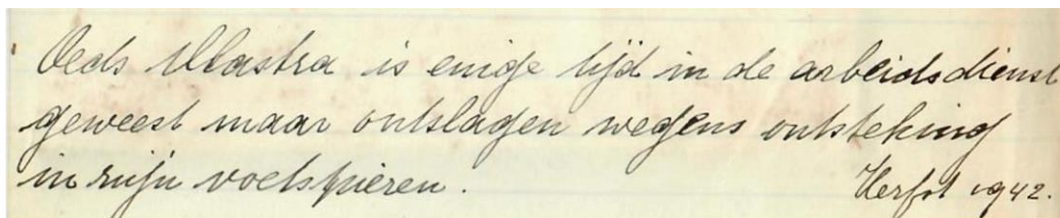 Oeds Wastra is enige tijd in de arbeidsdienst
geweest maar ontslagen wegens ontsteking
in zijn voetspieren. Herfst 1942.